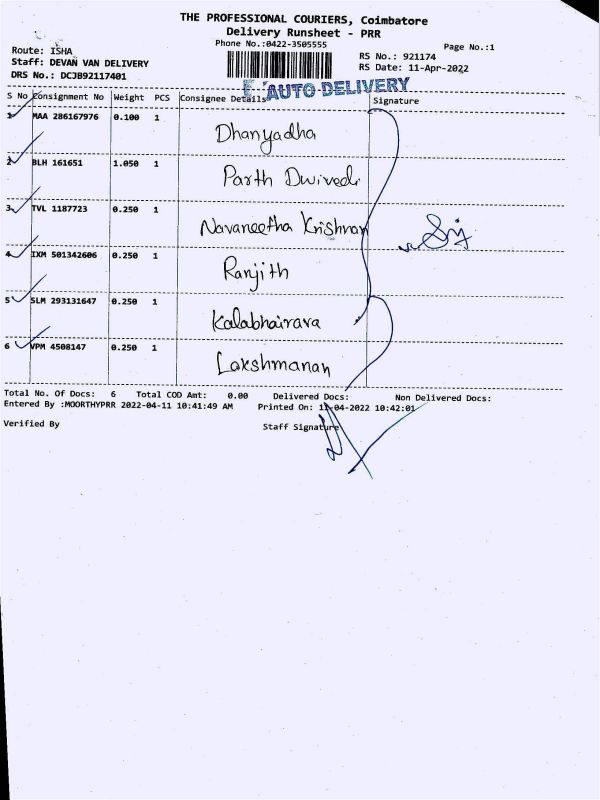 THE PROFESSIONAL COURIERS, Coimbatore
Delivery Runsheet - PRR
Phone No.:0422-3505555
Page No.:1
Route: ISHA
RS No.: 921174
Staff: DEVAN VAN DELIVERY
RS Date: 11-Apr-2022
DRS No.: DCJB92117401
AUTO DELIVERY
S No Consignment No Weight PCS Consignee Details Signature
1 MAA 286167976 0.100 1 Dhanyadha
2 BLH 161651 1.050 1 Parth Dwivedi
3 TVL 1187723 0.250 1 Navaneetha Krishnan
4 IXM 501342606 0.250 1 Ranjith
5 SLM 293131647 0.250 1 Kalabhairava
6 VPM 4508147 0.250 1 Lakshmanan
Total No. Of Docs: 6 Total COD Amt: 0.00 Delivered Docs: Non Delivered Docs:
Entered By :MOORTHYPRR 2022-04-11 10:41:49 AM Printed On: 11-04-2022 10:42:01
Verified By Staff Signature